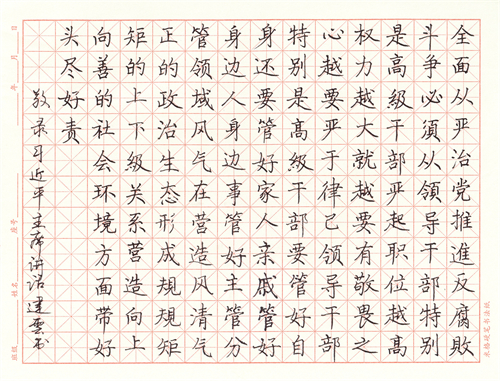 全面从严治党推進反腐敗
斗争必須从領导干部特别
是高級干部严起职位越高
权力越大就越要有敬畏之
心越要严于律己領导干部
特别是高級干部要管好自
身还要管好家人亲戚管好
身边人身边事管好主管分
管領域风气在营造风清气
正的政治生态形成規規矩
矩的上下級关系营造向上
向善的社会环境方面带好
头尽好责
敬录习近平主席讲话 建云书
班级 姓名 座号 年 月 日
米格硬笔书法纸